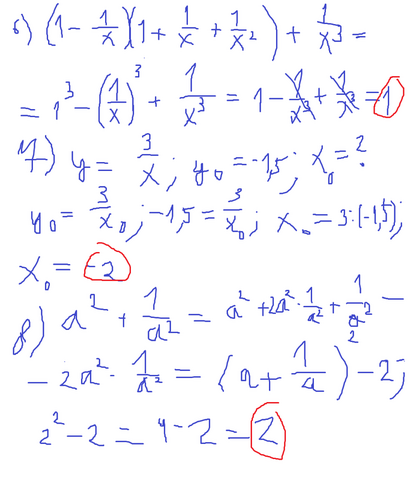 6) (1 - 1/x)(1 + 1/x + 1/x²) + 1/x³ =
= 1³ - (1/x)³ + 1/x³ = 1 - 1/x³ + 1/x³ = 1
7) y = 3/x; y₀ = -1,5; x₀ = ?
y₀ = 3/x₀; -1,5 = 3/x₀; x₀ = 3:(-1,5);
x₀ = -2
8) a² + 1/a² = a² + 2a² · 1/a² + 1/a² -
- 2a² · 1/a² = (a + 1/a)² - 2;
2² - 2 = 4 - 2 = 2